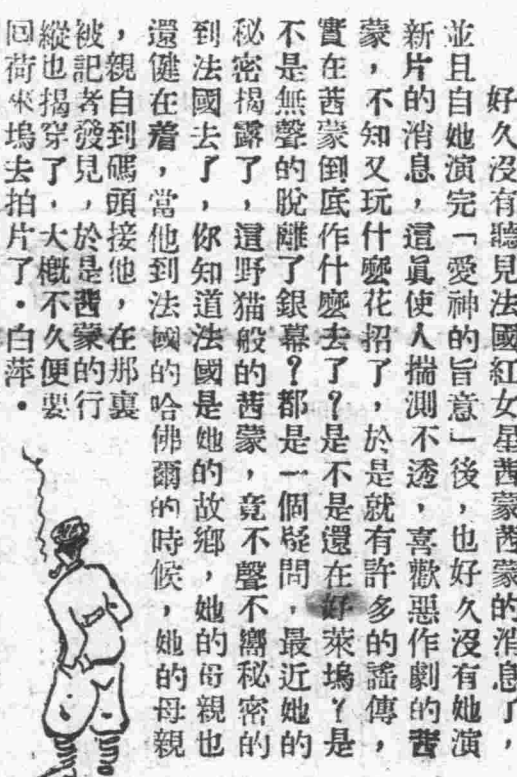 好久沒有聽見法國紅女星茜蒙茜蒙的消息了，
並且自她演完「愛神的旨意」後，也好久沒有她演
新片的消息，這眞使人揣測不透，喜歡惡作劇的茜
蒙，不知又玩什麽花招了，於是就有許多的謠傳，
實在茜蒙倒底作什麽去了？是不是還在好萊塢？是
不是無聲的脫離了銀幕？都是一個疑問，最近她的
秘密揭露了，這野猫般的茜蒙，竟不聲不嚮秘密的
到法國去了，你知道法國是她的故鄉，她的母親也
還健在着，當他到法國的哈佛爾的時候，她的母親
，親自到碼頭接他，在那裏
被記者發見，於是茜蒙的行
縱也揭穿了，大概不久便要
回荷來塢去拍片了．白萍．